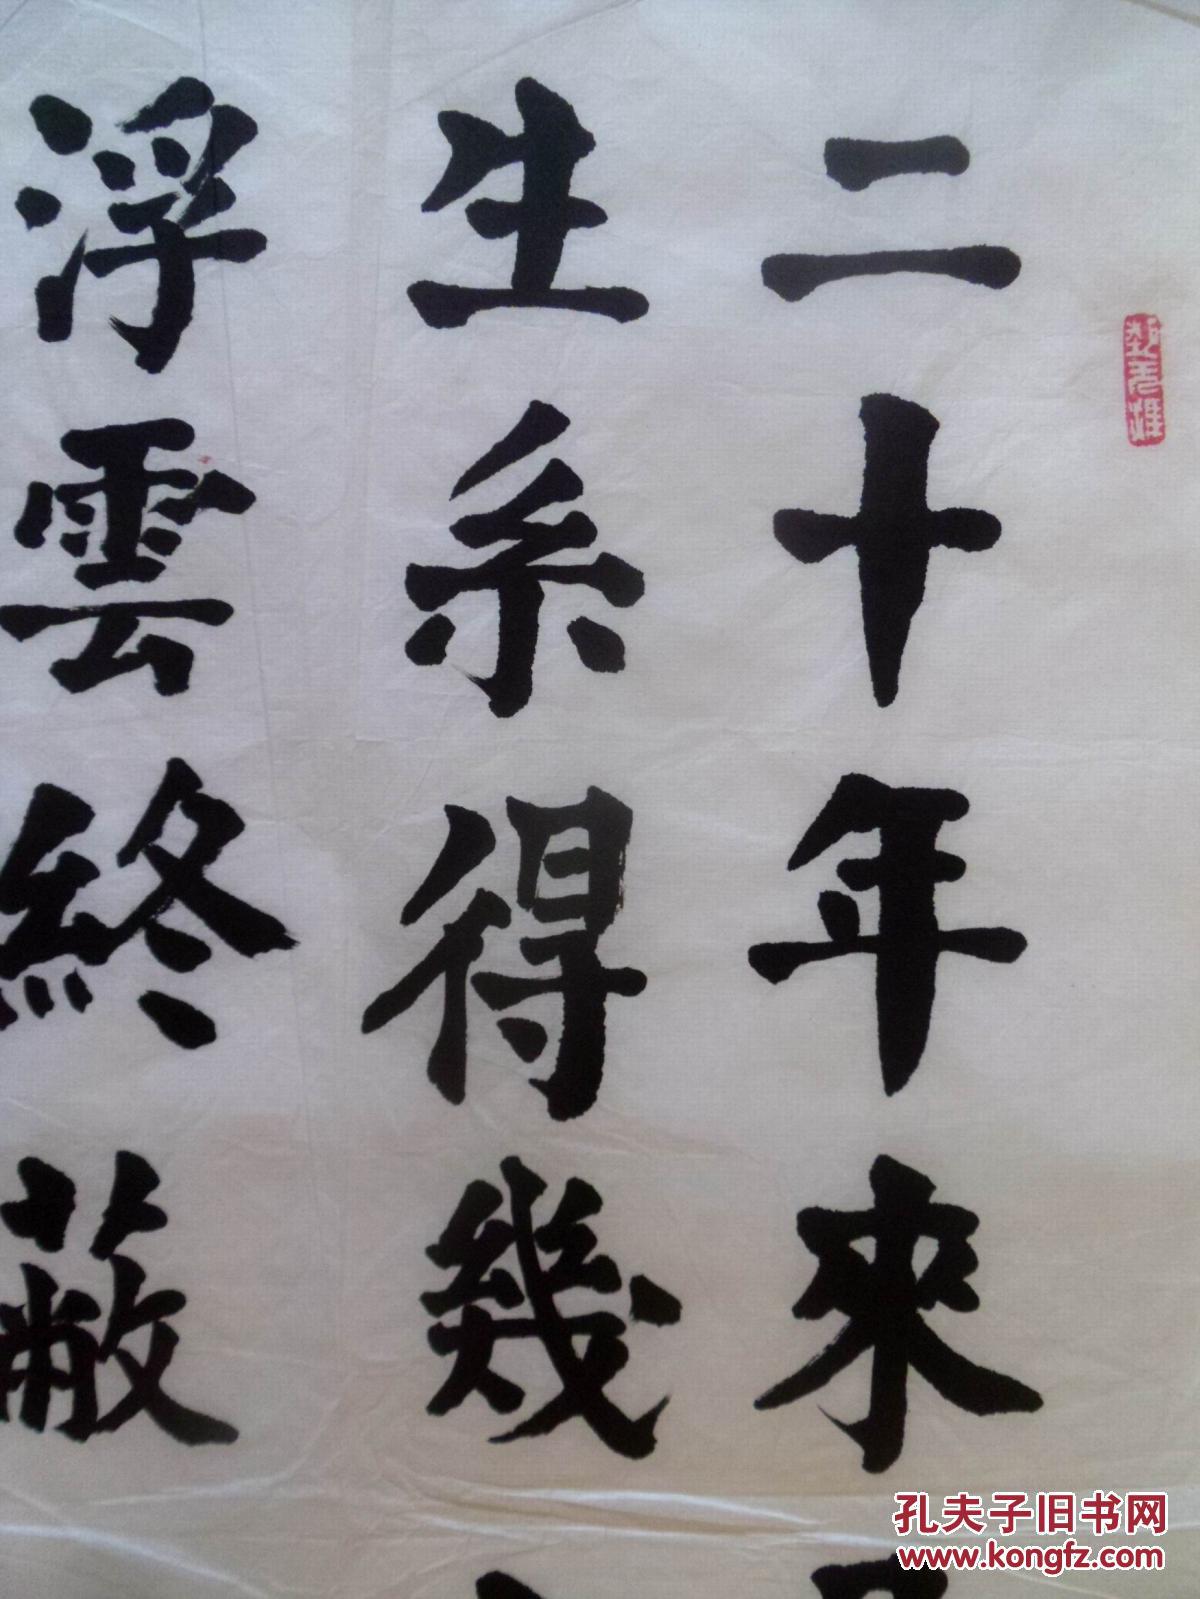 二十年來
生系得幾
浮雲終蔽
孔夫子旧书网
www.kongfz.com